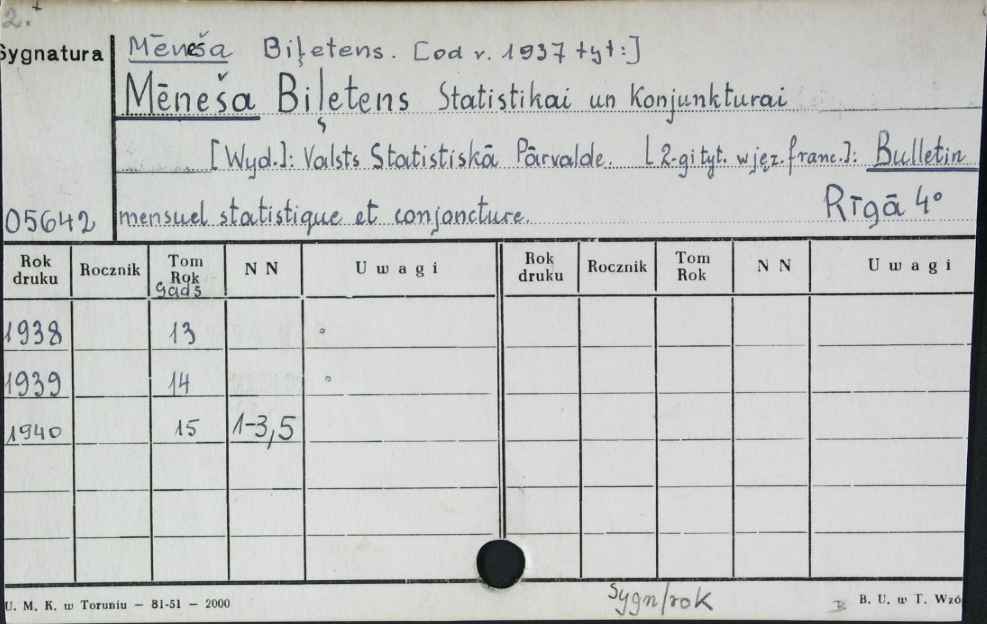 2.+
Sygnatura
Mēneša Biļetens. [od r. 1937 tyt:]
Mēneša Biļetens Statistikai un Konjunkturai
[Wyd.]: Valsts Statistiskā Pārvalde. [2-gi tyt. w jęz. franc.]: Bulletin
05642 mensuel statistique et conjoncture. Rīgā 4°
Rok druku Rocznik Tom Rok gads N N Uwagi Rok druku Rocznik Tom Rok N N Uwagi
1938 13
1939 14
1940 15 1-3,5
Sygn/rok
U. M. K. w Toruniu — 81-51 — 2000 B. U. w T. Wzó